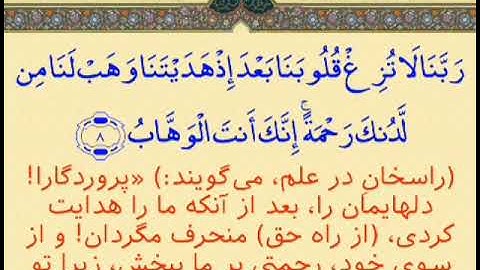 رَبَّنَا لَا تُزِغْ قُلُوبَنَا بَعْدَ إِذْ هَدَيْتَنَا وَهَبْ لَنَا مِن
لَّدُنكَ رَحْمَةً ۚ إِنَّكَ أَنتَ الْوَهَّابُ ﴿٨﴾
(راسخانِ در علم، می‌گویند:) «پروردگارا!
دلهایمان را، بعد از آنکه ما را هدایت
کردی، (از راه حق) منحرف مگردان! و از
سوی خود، رحمتی بر ما ببخش، زیرا تو